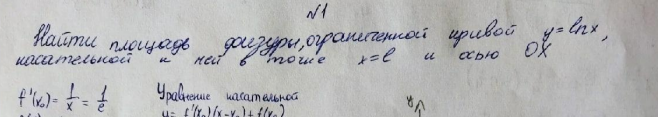 №1
Найти площадь фигуры, ограниченной кривой y=lnx,
касательной к ней в точке x=e и осью OX
f'(x₀) = 1/x = 1/e
Уравнение касательной
y = f'(x₀)(x-x₀)+f(x₀)
y